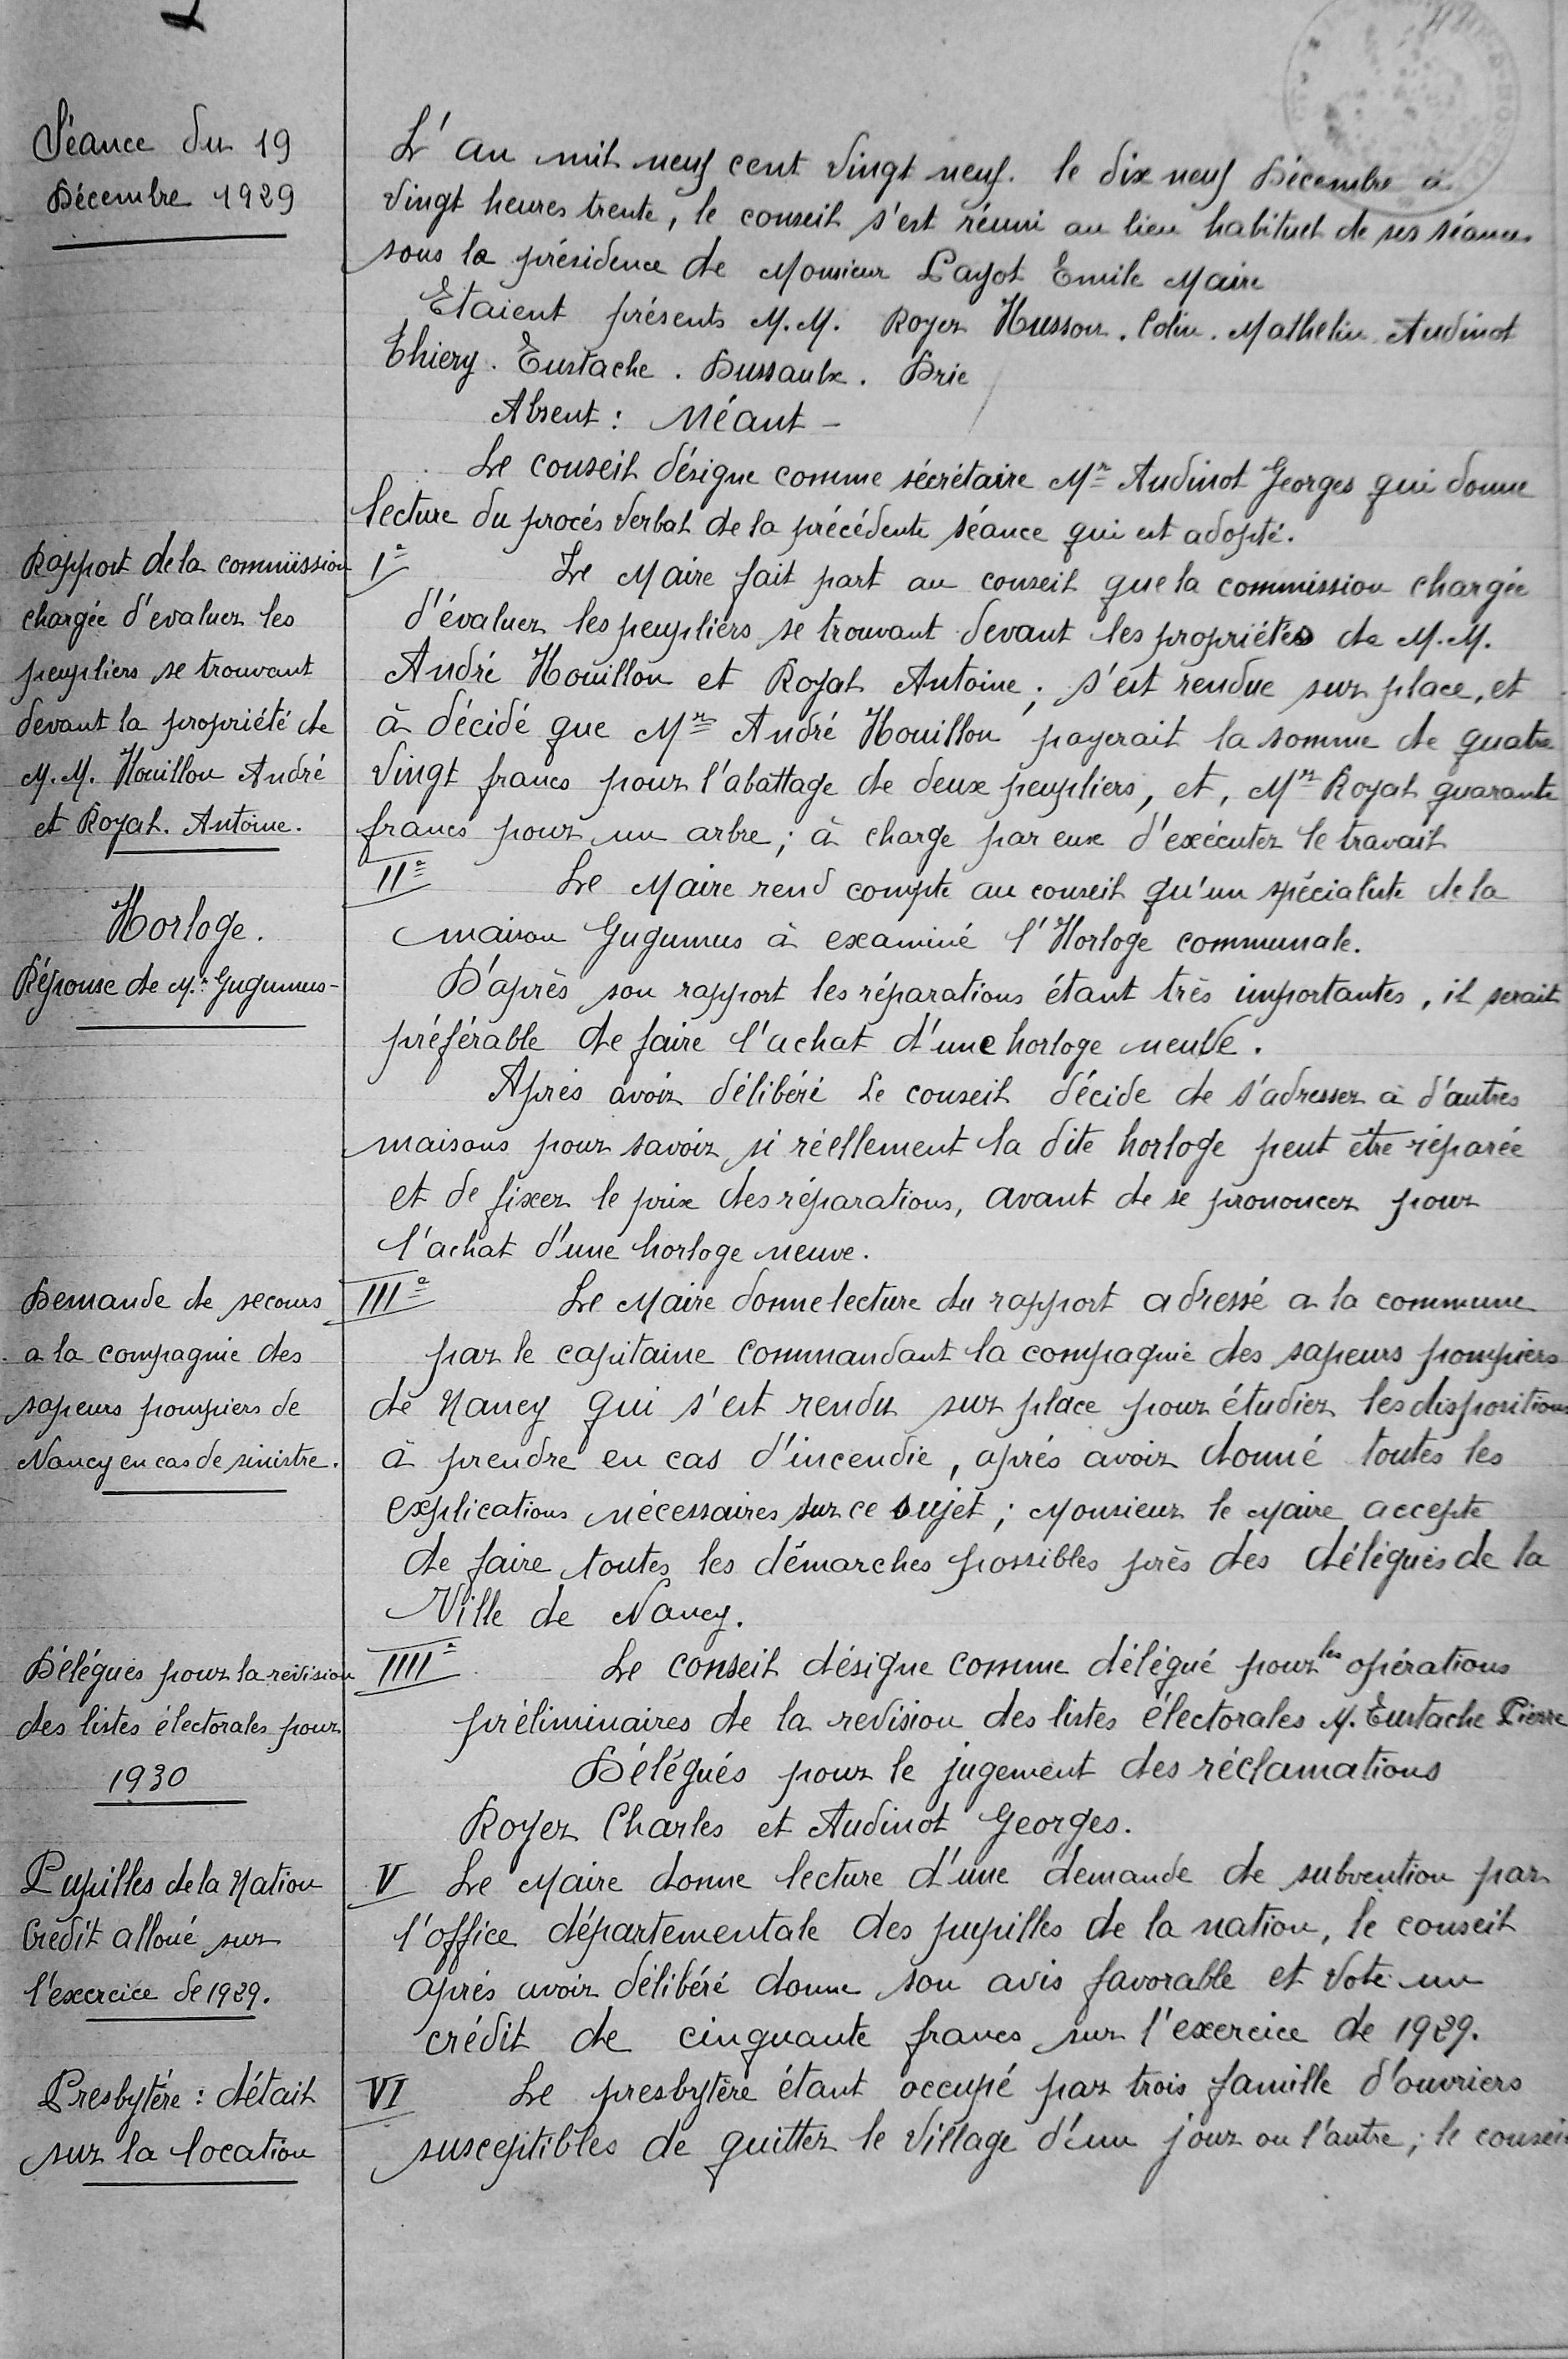 Séance du 19
Décembre 1929
L'an mil neuf cent vingt neuf. le dix neuf Décembre à
vingt heures trente, le conseil s'est réuni au lieu habituel de ses séances
sous la présidence de Monsieur Payot Emile Maire
Etaient présents M.M. Royer Husson. Colin. Mathelin. Audinot
Thiery. Eustache. Dussaulx. Brie
Absent : Néant -
Le conseil désigne comme sécrétaire Mr Audinot Georges qui donne
lecture du procés verbal de la précédente séance qui est adopté.
Rapport de la commission
chargée d'evaluer les
peupliers se trouvant
devant la propriété de
M.M. Houillon André
et Royal. Antoine.
I° Le Maire fait part au conseil que la commission chargée
d'évaluer les peupliers se trouvant devant les propriétés de M.M.
André Houillon et Royal Antoine ; s'est rendue sur place, et
à décidé que Mr André Houillon payerait la somme de quatre
vingt francs pour l'abattage de deux peupliers, et, Mr Royal quarante
francs pour un arbre ; à charge par eux d'exécuter le travail
Horloge.
Réponse de Mr Gugumus -
II° Le Maire rend compte au conseil qu'un spécialiste de la
maison Gugumus à examiné l'Horloge communale.
D'après son rapport les réparations étant très importantes, il serait
préférable de faire l'achat d'une horloge neuve.
Aprés avoir délibéré Le conseil décide de s'adresser à d'autres
maisons pour savoir si réellement la dite horloge peut être réparée
et de fixer le prix des réparations, avant de se prononcer pour
l'achat d'une horloge neuve.
Demande de secours
a la compagnie des
sapeurs pompiers de
Nancy en cas de sinistre.
III° Le Maire donne lecture du rapport adressé a la commune
par le capitaine commandant la compagnie des sapeurs pompiers
de Nancy qui s'est rendu sur place pour étudier les dispositions
à prendre en cas d'incendie, aprés avoir donné toutes les
explications nécessaires sur ce sujet ; Monsieur le Maire accepte
de faire toutes les démarches possibles près des délégués de la
Ville de Nancy.
Délégués pour la révision
des listes électorales pour
1930
IIII° Le conseil désigne comme délégué pour les opérations
préliminaires de la revision des listes électorales M. Eustache Pierre
Délégués pour le jugement des réclamations
Royer Charles et Audinot Georges.
Pupilles de la Nation
Crédit alloué sur
l'exercice de 1929.
V Le Maire donne lecture d'une demande de subvention par
l'office départementale des pupilles de la nation, le conseil
aprés avoir délibéré donne son avis favorable et vote un
crédit de cinquante francs sur l'exercice de 1929.
Presbytére : détail
sur la location
VI Le presbytère étant occupé par trois famille d'ouvriers
susceptibles de quitter le village d'un jour ou l'autre ; le conseil